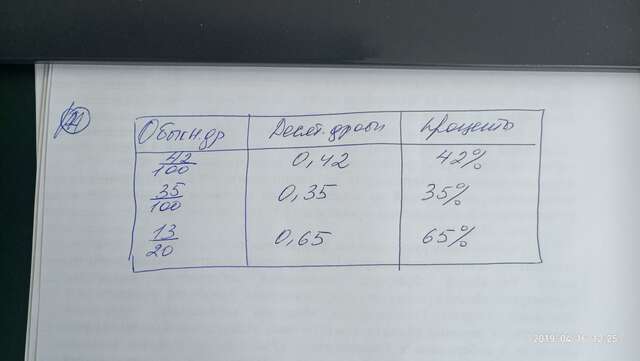 21
Обыкн.др Десят.дроби Проценты
42/100 0,42 42%
35/100 0,35 35%
13/20 0,65 65%
2019-04-16 12:25